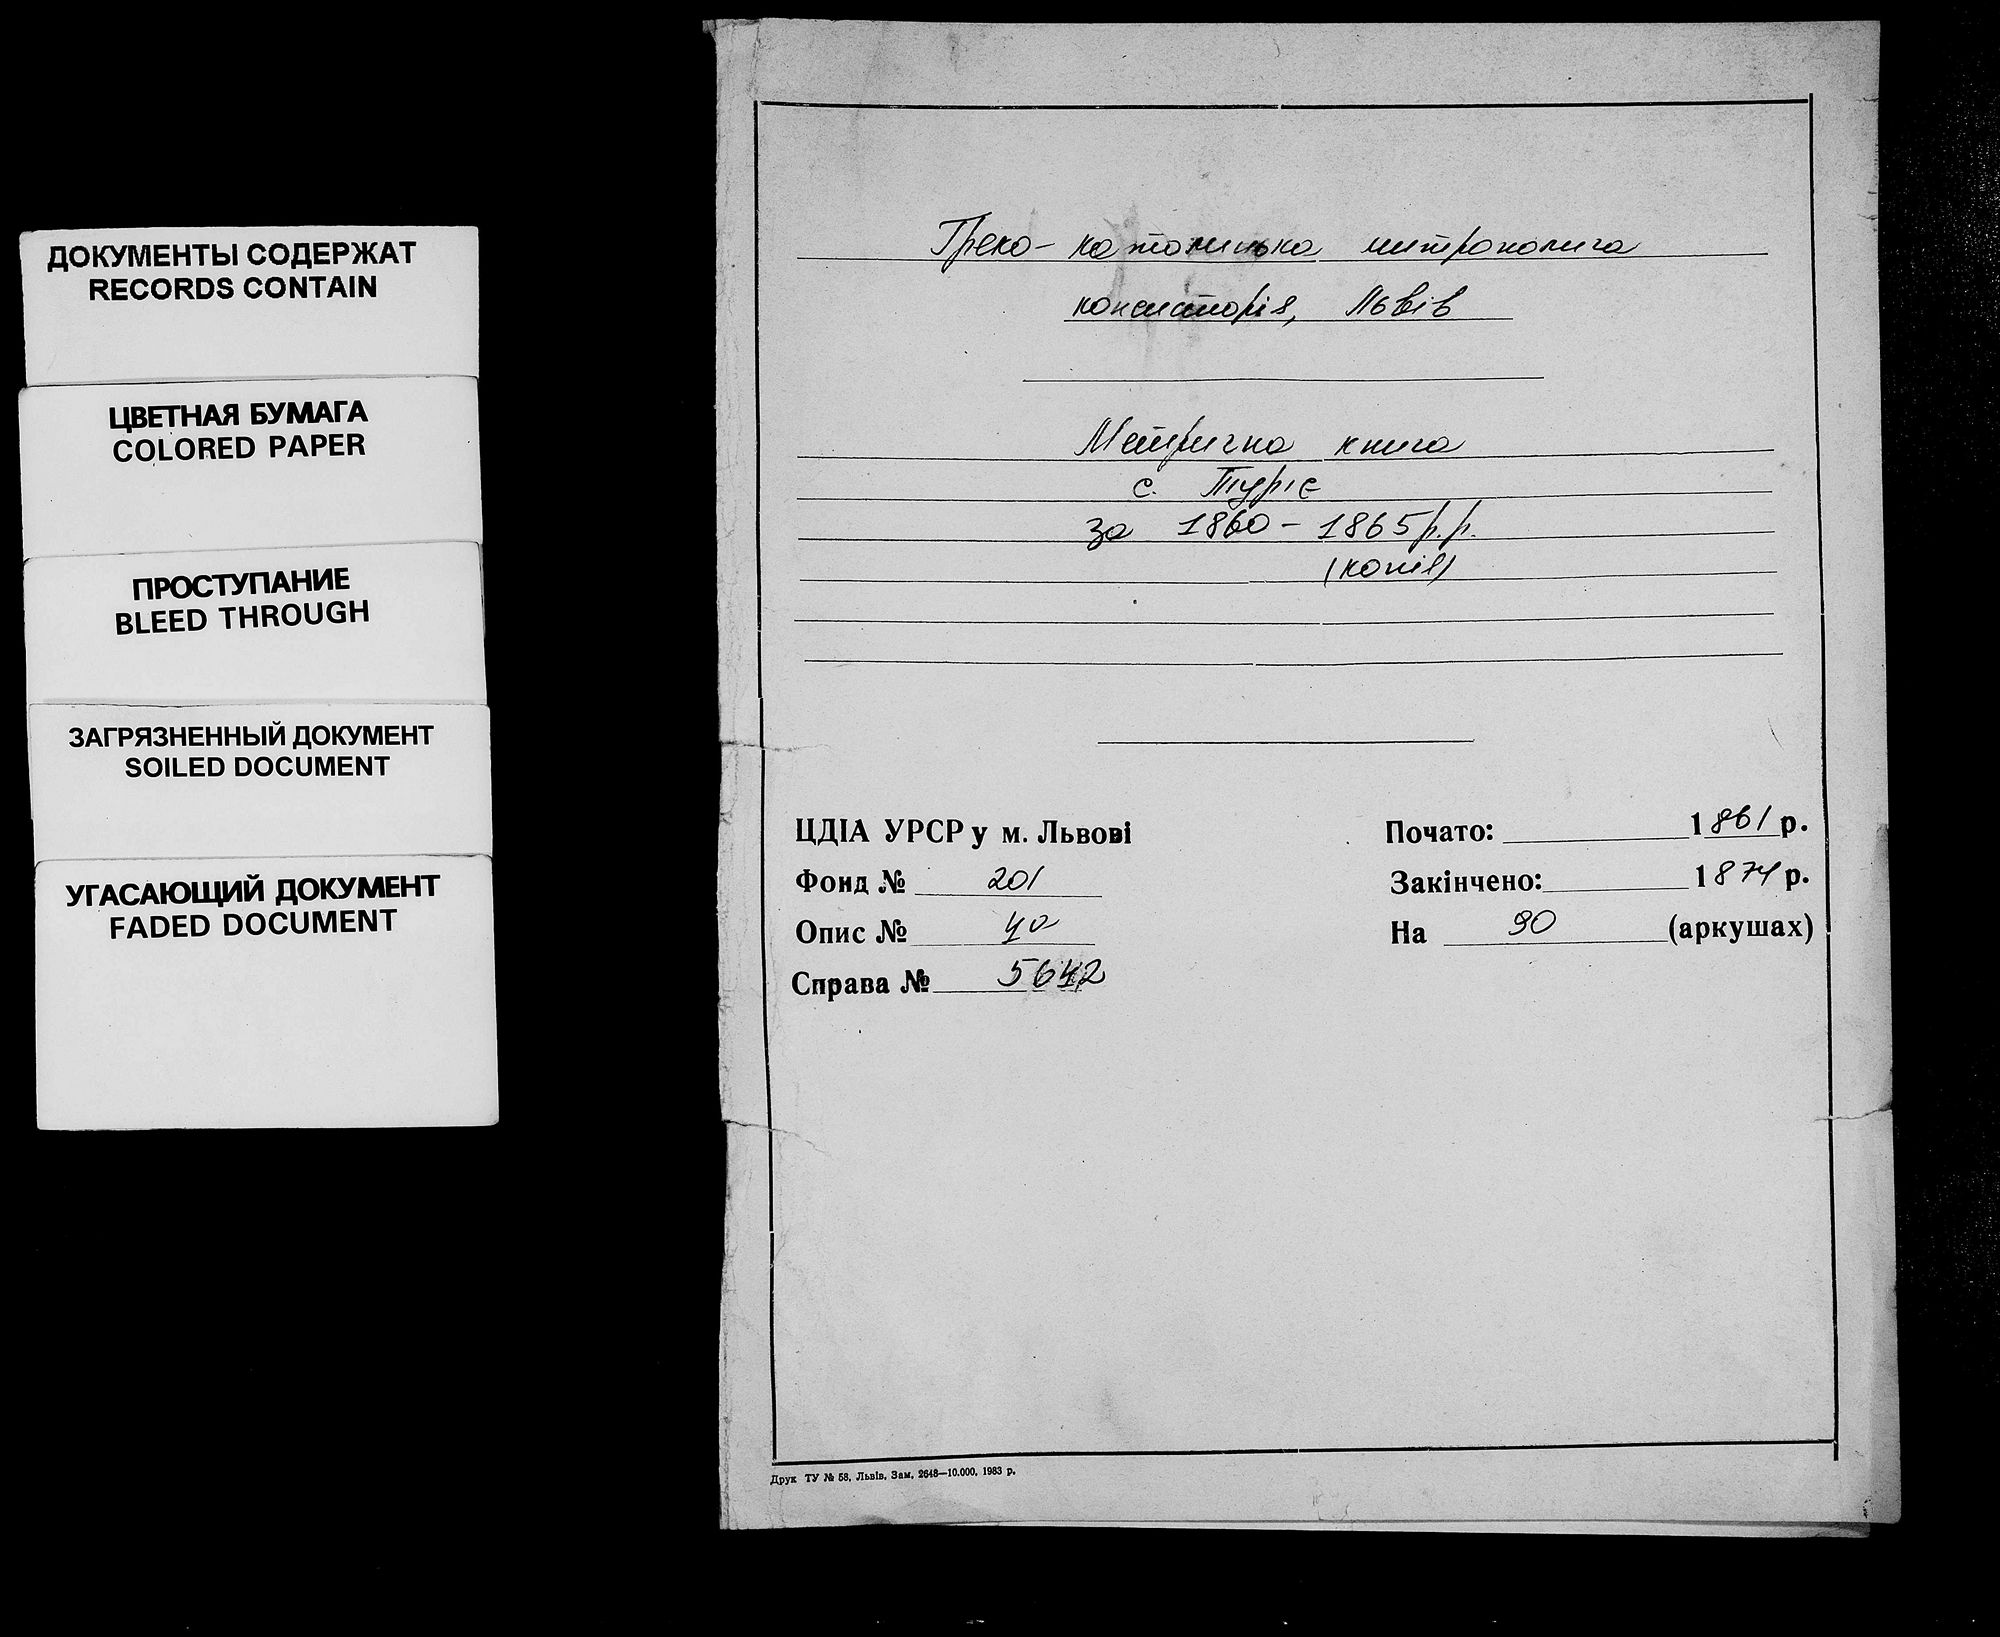 ДОКУМЕНТЫ СОДЕРЖАТ
RECORDS CONTAIN
ЦВЕТНАЯ БУМАГА
COLORED PAPER
ПРОСТУПАНИЕ
BLEED THROUGH
ЗАГРЯЗНЕННЫЙ ДОКУМЕНТ
SOILED DOCUMENT
УГАСАЮЩИЙ ДОКУМЕНТ
FADED DOCUMENT
Греко-католицька митрополича
консисторія, Львів
Метрична книга
с. Турʼє
за 1860-1865 р.р.
(копія)
ЦДІА УРСР у м. Львові
Фонд № 201
Опис № 4а
Справа № 5642
Почато: 1861 р.
Закінчено: 1874 р.
На 90 (аркушах)
Друк ТУ № 58, Львів, Зам. 2648—10.000. 1983 р.